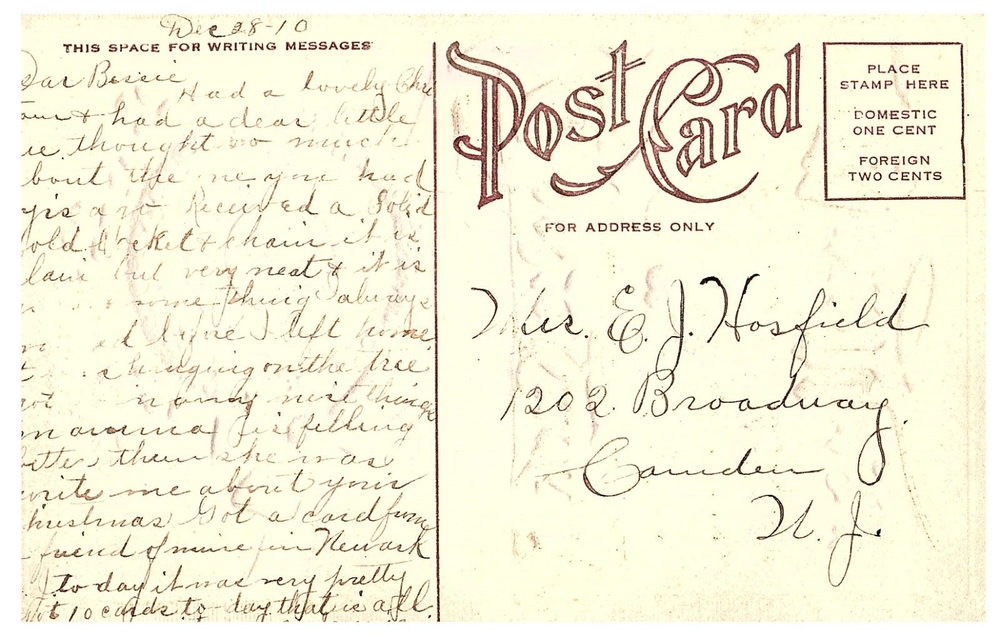 Dec 28-10
THIS SPACE FOR WRITING MESSAGES
Dear Bessie
Had a lovely
& had a dear little
thought so much
the one you had
Received a Solid
& chain it is
but very neat & it is
some thing always
I left home
hanging on the tree
many nice things
mamma is filling
than she was
write me about your
Got a card from
friend of mine in Newark
to day it was very pretty
10 cards to-day that is all.
Post Card
FOR ADDRESS ONLY
PLACE
STAMP HERE
DOMESTIC
ONE CENT
FOREIGN
TWO CENTS
Mrs. E. J. Hosfield
1202 Broadway
Camden
N. J.